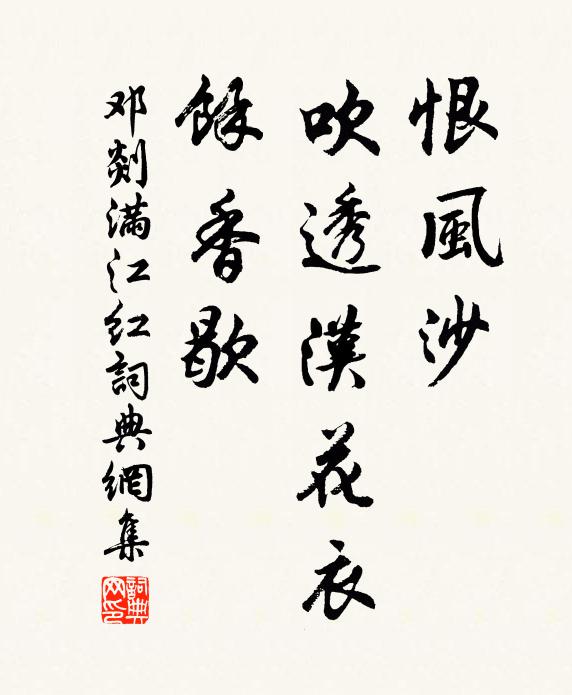 恨風沙
吹透漢花衣
餘香歇
邓剡滿江红詞典網集
詞典网印